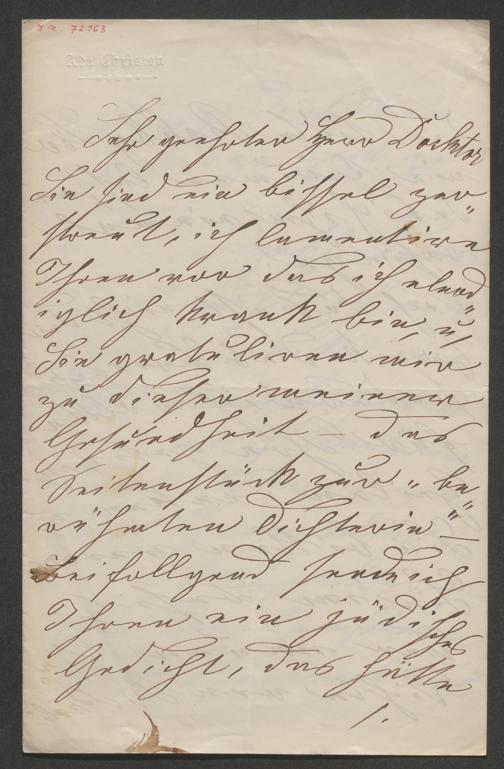 J.N. 72063
Ada Christen
Sehr geehrter Herr Docktor
Sie sind ein bissel zer„
streut, ich lamentire
Ihnen vor das ich elend„
iglich krank bin, u
Sie gratuliren mir
zu dieser meiner
Gesundheit – das
Seitenstück zur „be„
rühmten Dichterin“ –
Beifollgend sende ich
Ihnen ein jüdisches
Gedicht, das hätte
/.